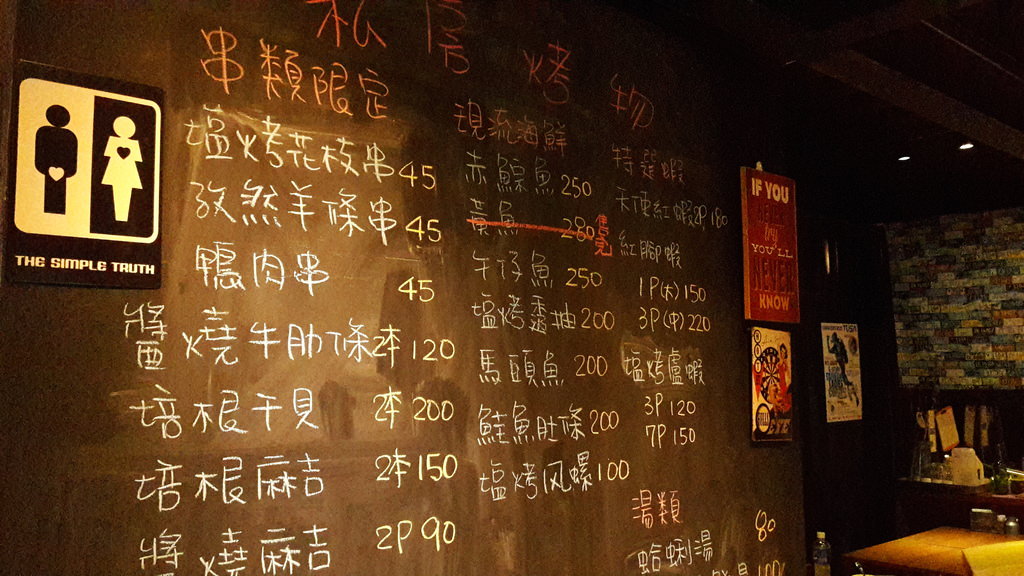 私房烤物
串類限定
塩烤花枝串45
孜然羊條串45
鴨肉串45
醬燒牛肋條2本120
培根干貝2本200
培根麻吉2本150
醬燒麻吉2P 90
現流海鮮
赤鯮魚250
黃魚280售完
午仔魚250
塩烤透抽200
馬頭魚200
鮭魚肚條200
塩烤风螺100
特選蝦
天使紅蝦2P 180
紅腳蝦
1P(大)150
3P(中)220
塩烤盧蝦
3P 120
7P 150
湯類
蛤蜊湯80
THE SIMPLE TRUTH
IF YOU
YOU'LL
NEVER
KNOW